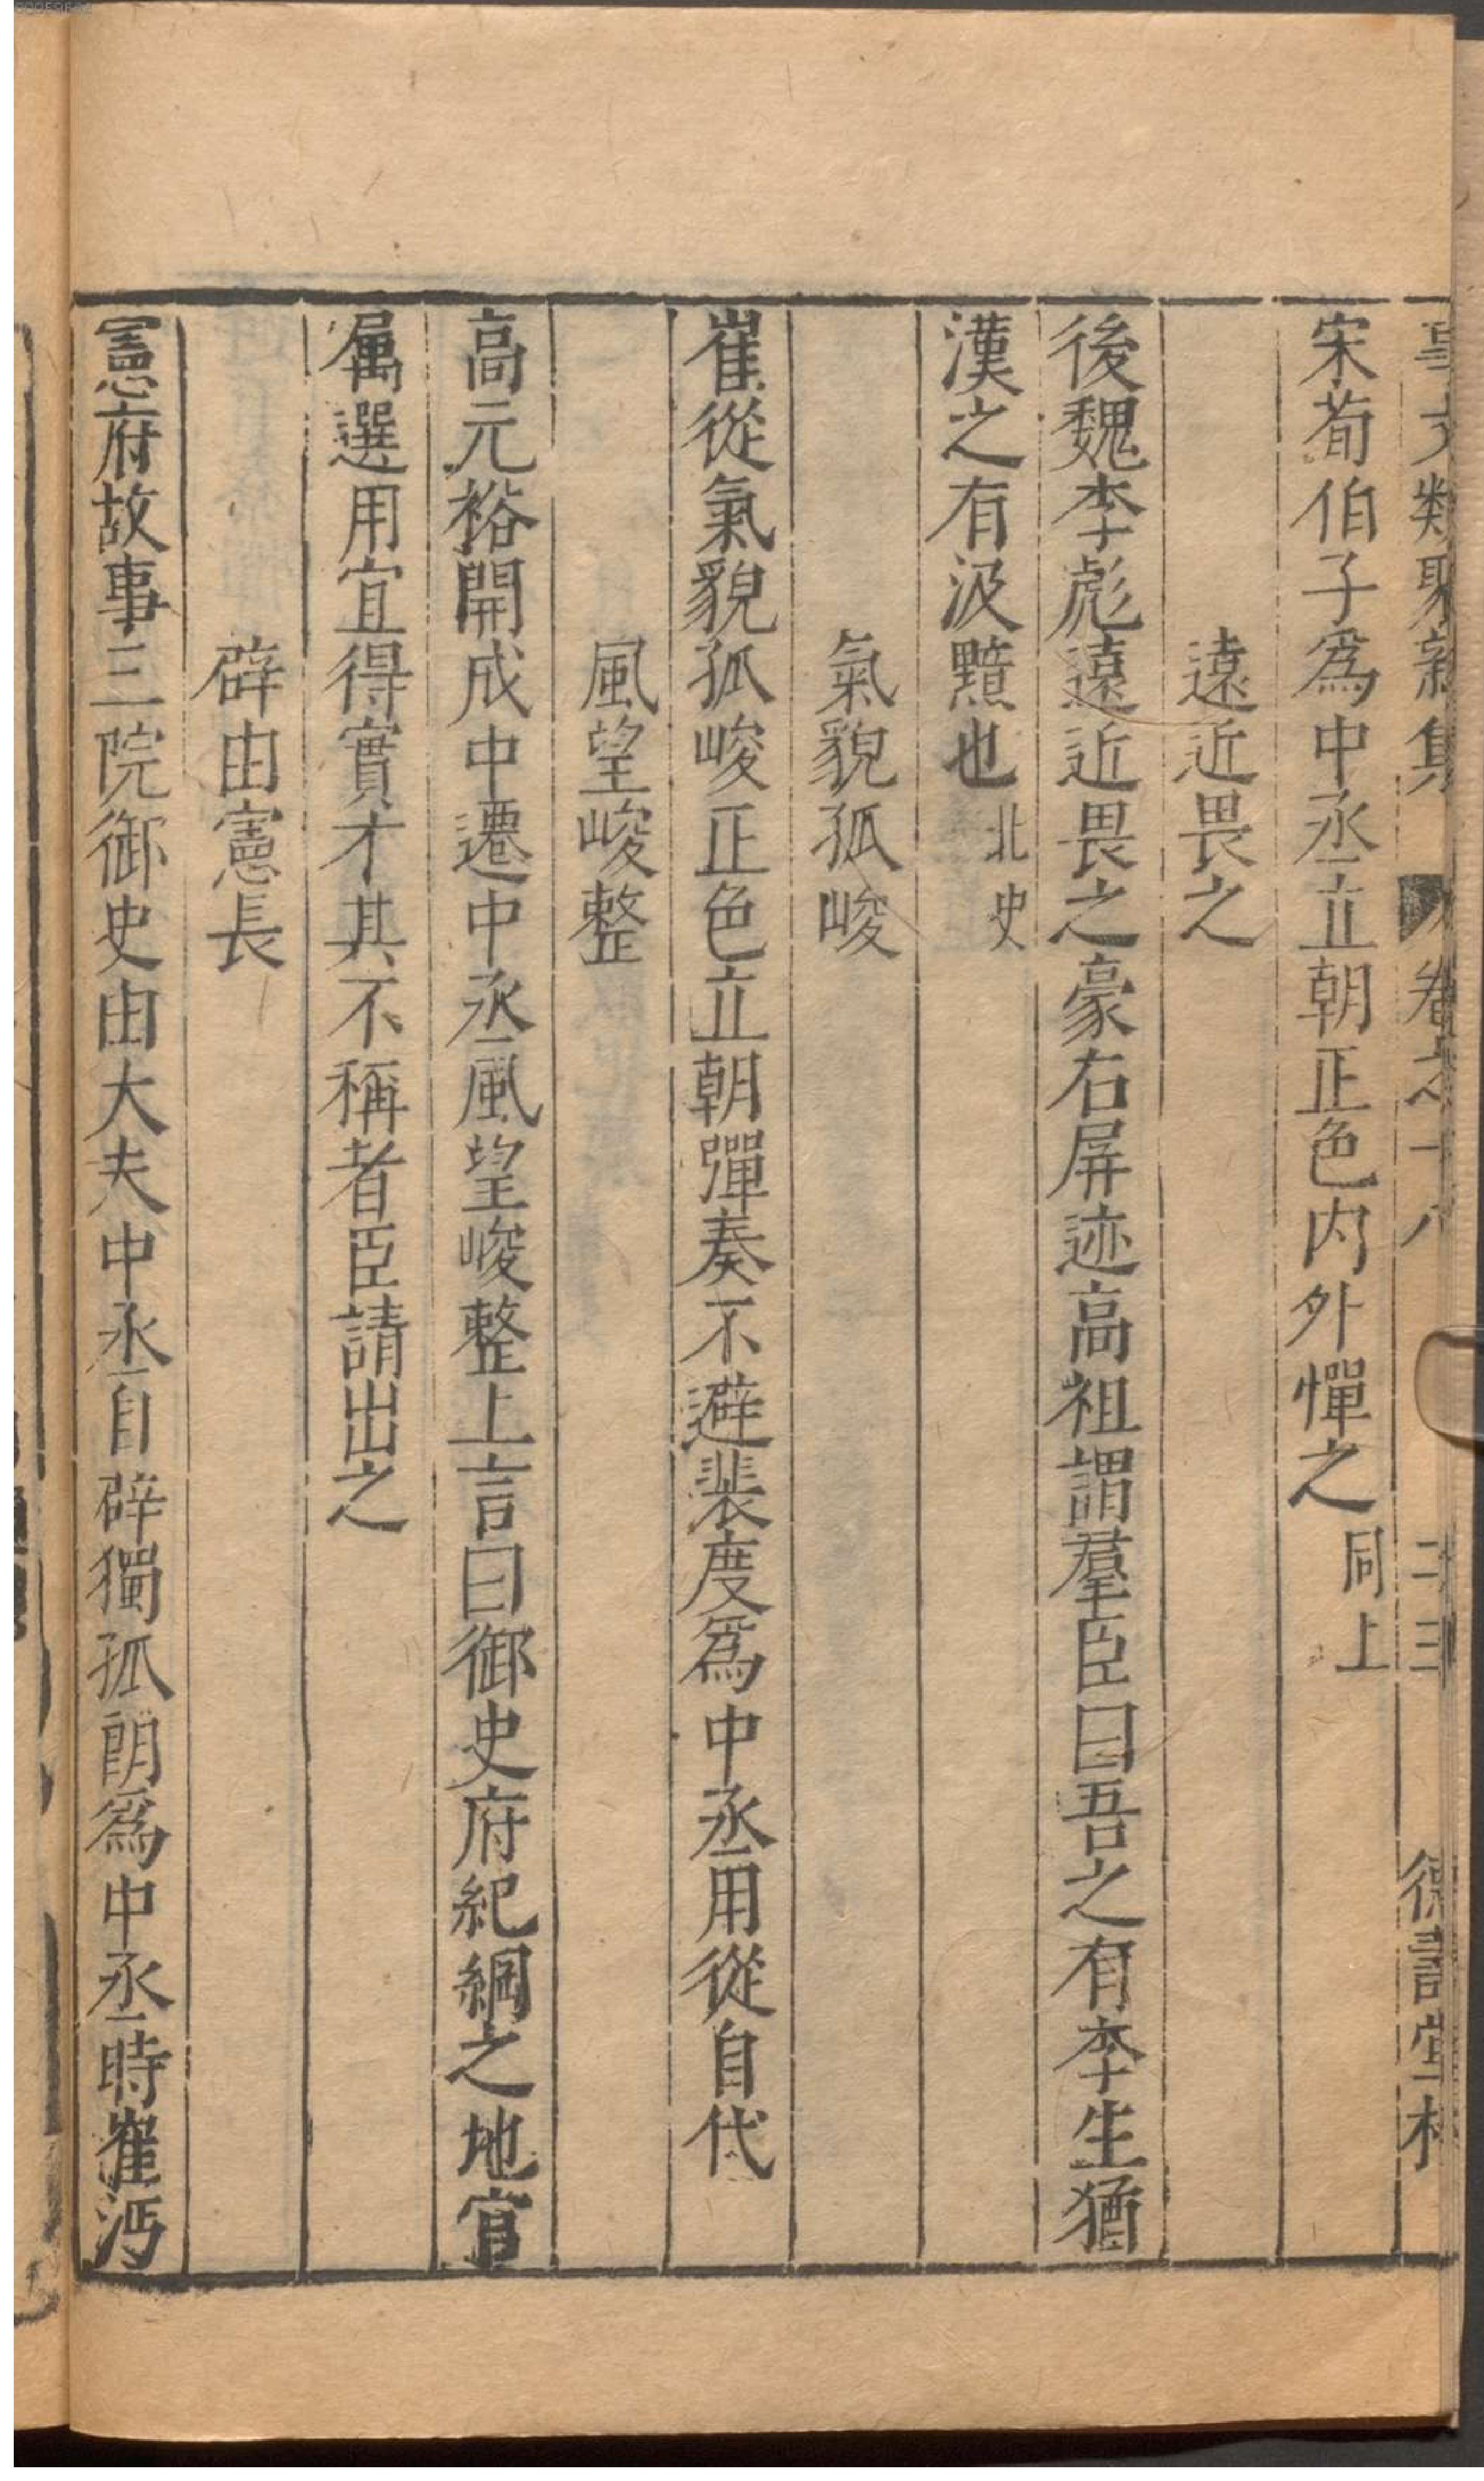 事文類聚新集 卷之十八 二十三 德壽堂梓
宋荀伯子爲中丞立朝正色内外憚之同上
遠近畏之
後魏李彪遠近畏之豪右屏迹高祖謂羣臣曰吾之有李生猶
漢之有汲黯也北史
氣貌孤峻
崔從氣貌孤峻正色立朝彈奏不避裴度爲中丞用從自代
風望峻整
高元裕開成中遷中丞風望峻整上言曰御史府紀綱之地官
属選用宜得實才其不稱者臣請出之
辟由憲長
憲府故事三院御史由大夫中丞自辟獨孤朗爲中丞時崔沔